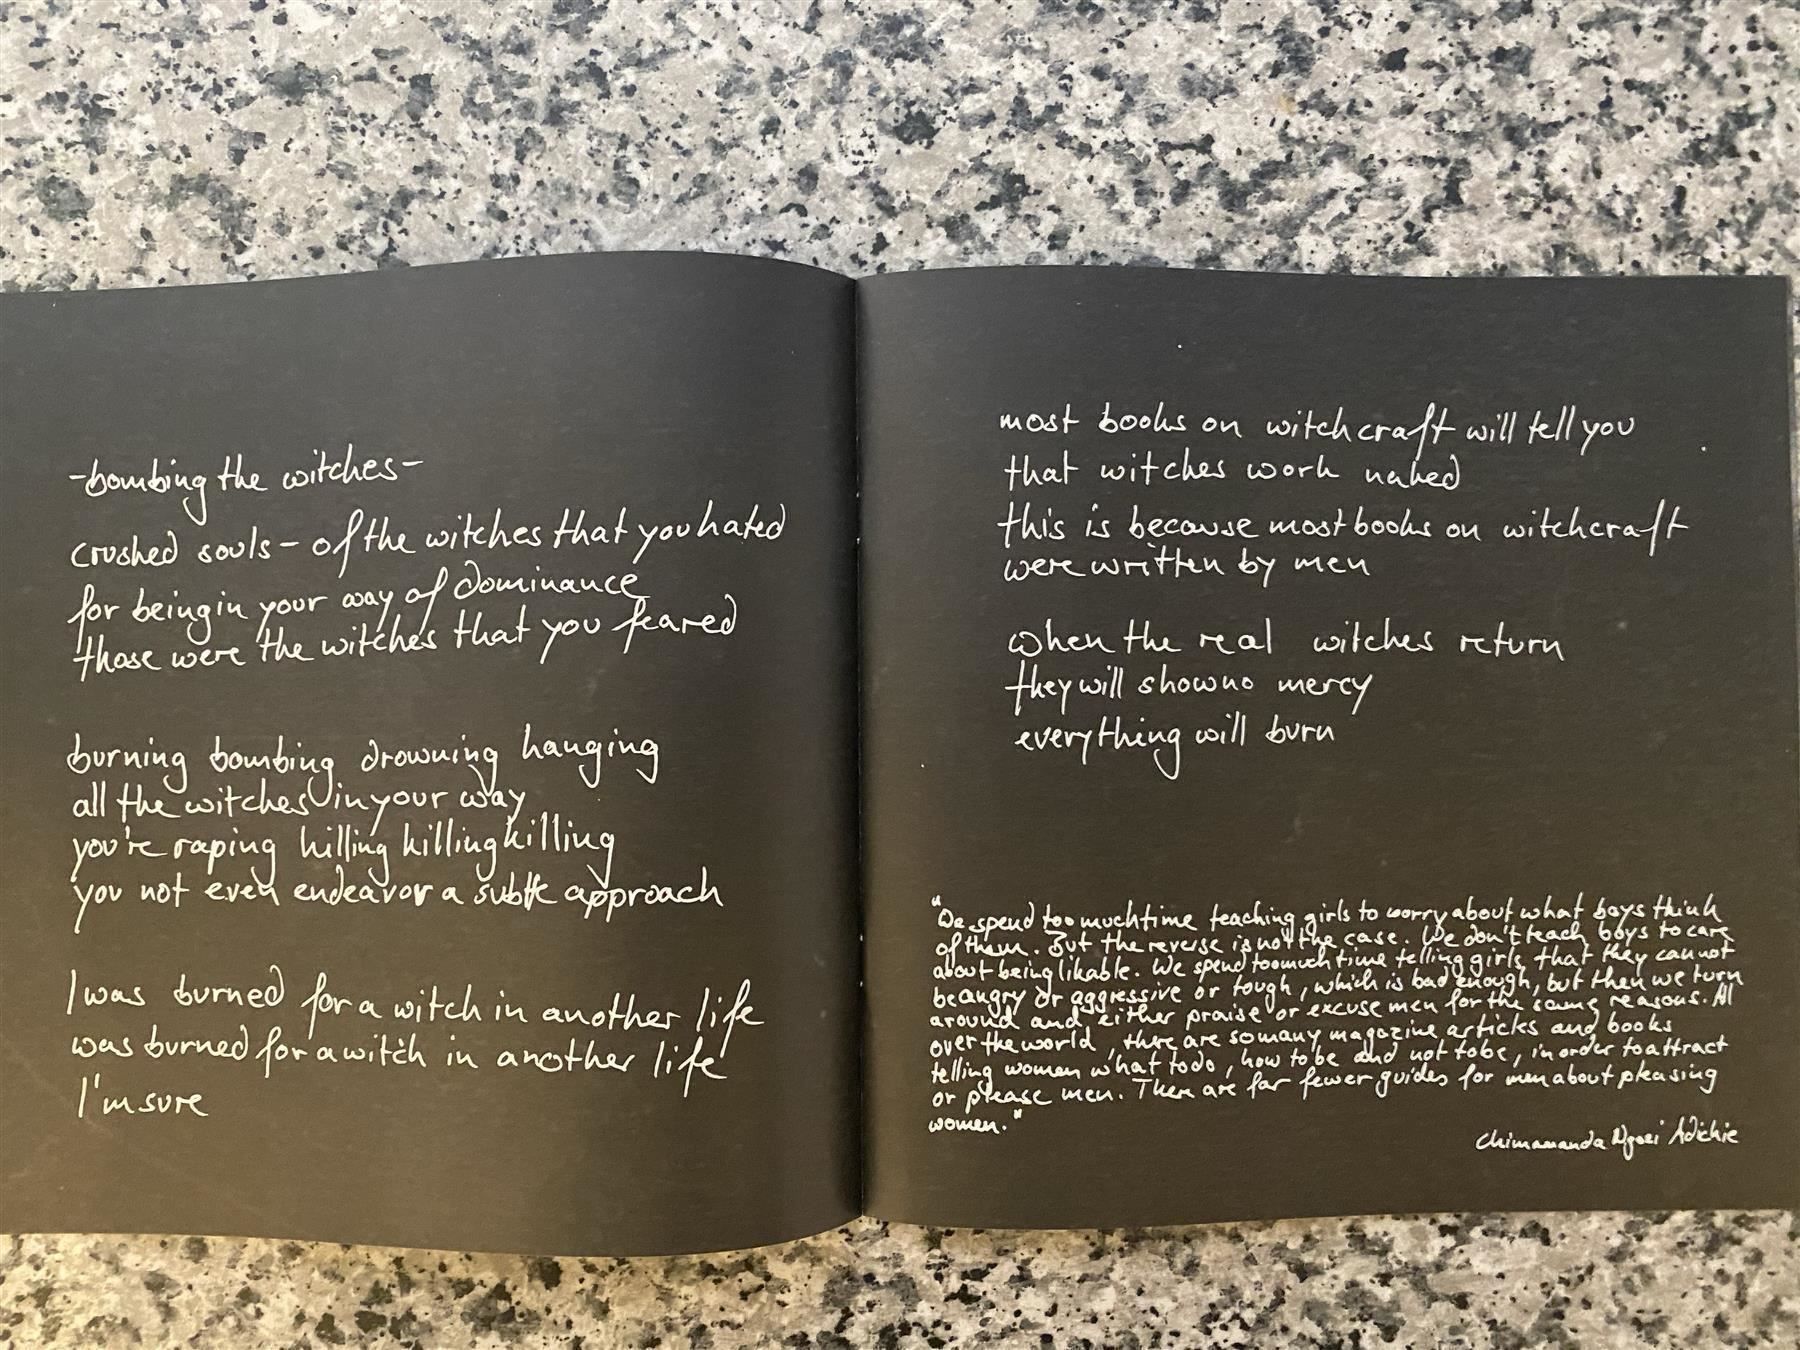 -bombing the witches-
crushed souls - of the witches that you hated
for being in your way of dominance
those were the witches that you feared
burning bombing drowning hanging
all the witches in your way
you're raping killing killing killing
you not even endeavor a subtle approach
I was burned for a witch in another life
was burned for a witch in another life
I'm sure
most books on witchcraft will tell you
that witches work naked
this is because most books on witchcraft
were written by men
when the real witches return
they will show no mercy
everything will burn
"We spend too much time teaching girls to worry about what boys think
of them. But the reverse is not the case. We don't teach boys to care
about being likable. We spend too much time telling girls that they cannot
be angry or aggressive or tough, which is bad enough, but then we turn
around and either praise or excuse men for the same reasons. All
over the world, there are so many magazine articles and books
telling women what to do, how to be and not to be, in order to attract
or please men. There are far fewer guides for men about pleasing
women."
Chimamanda Ngozi Adichie